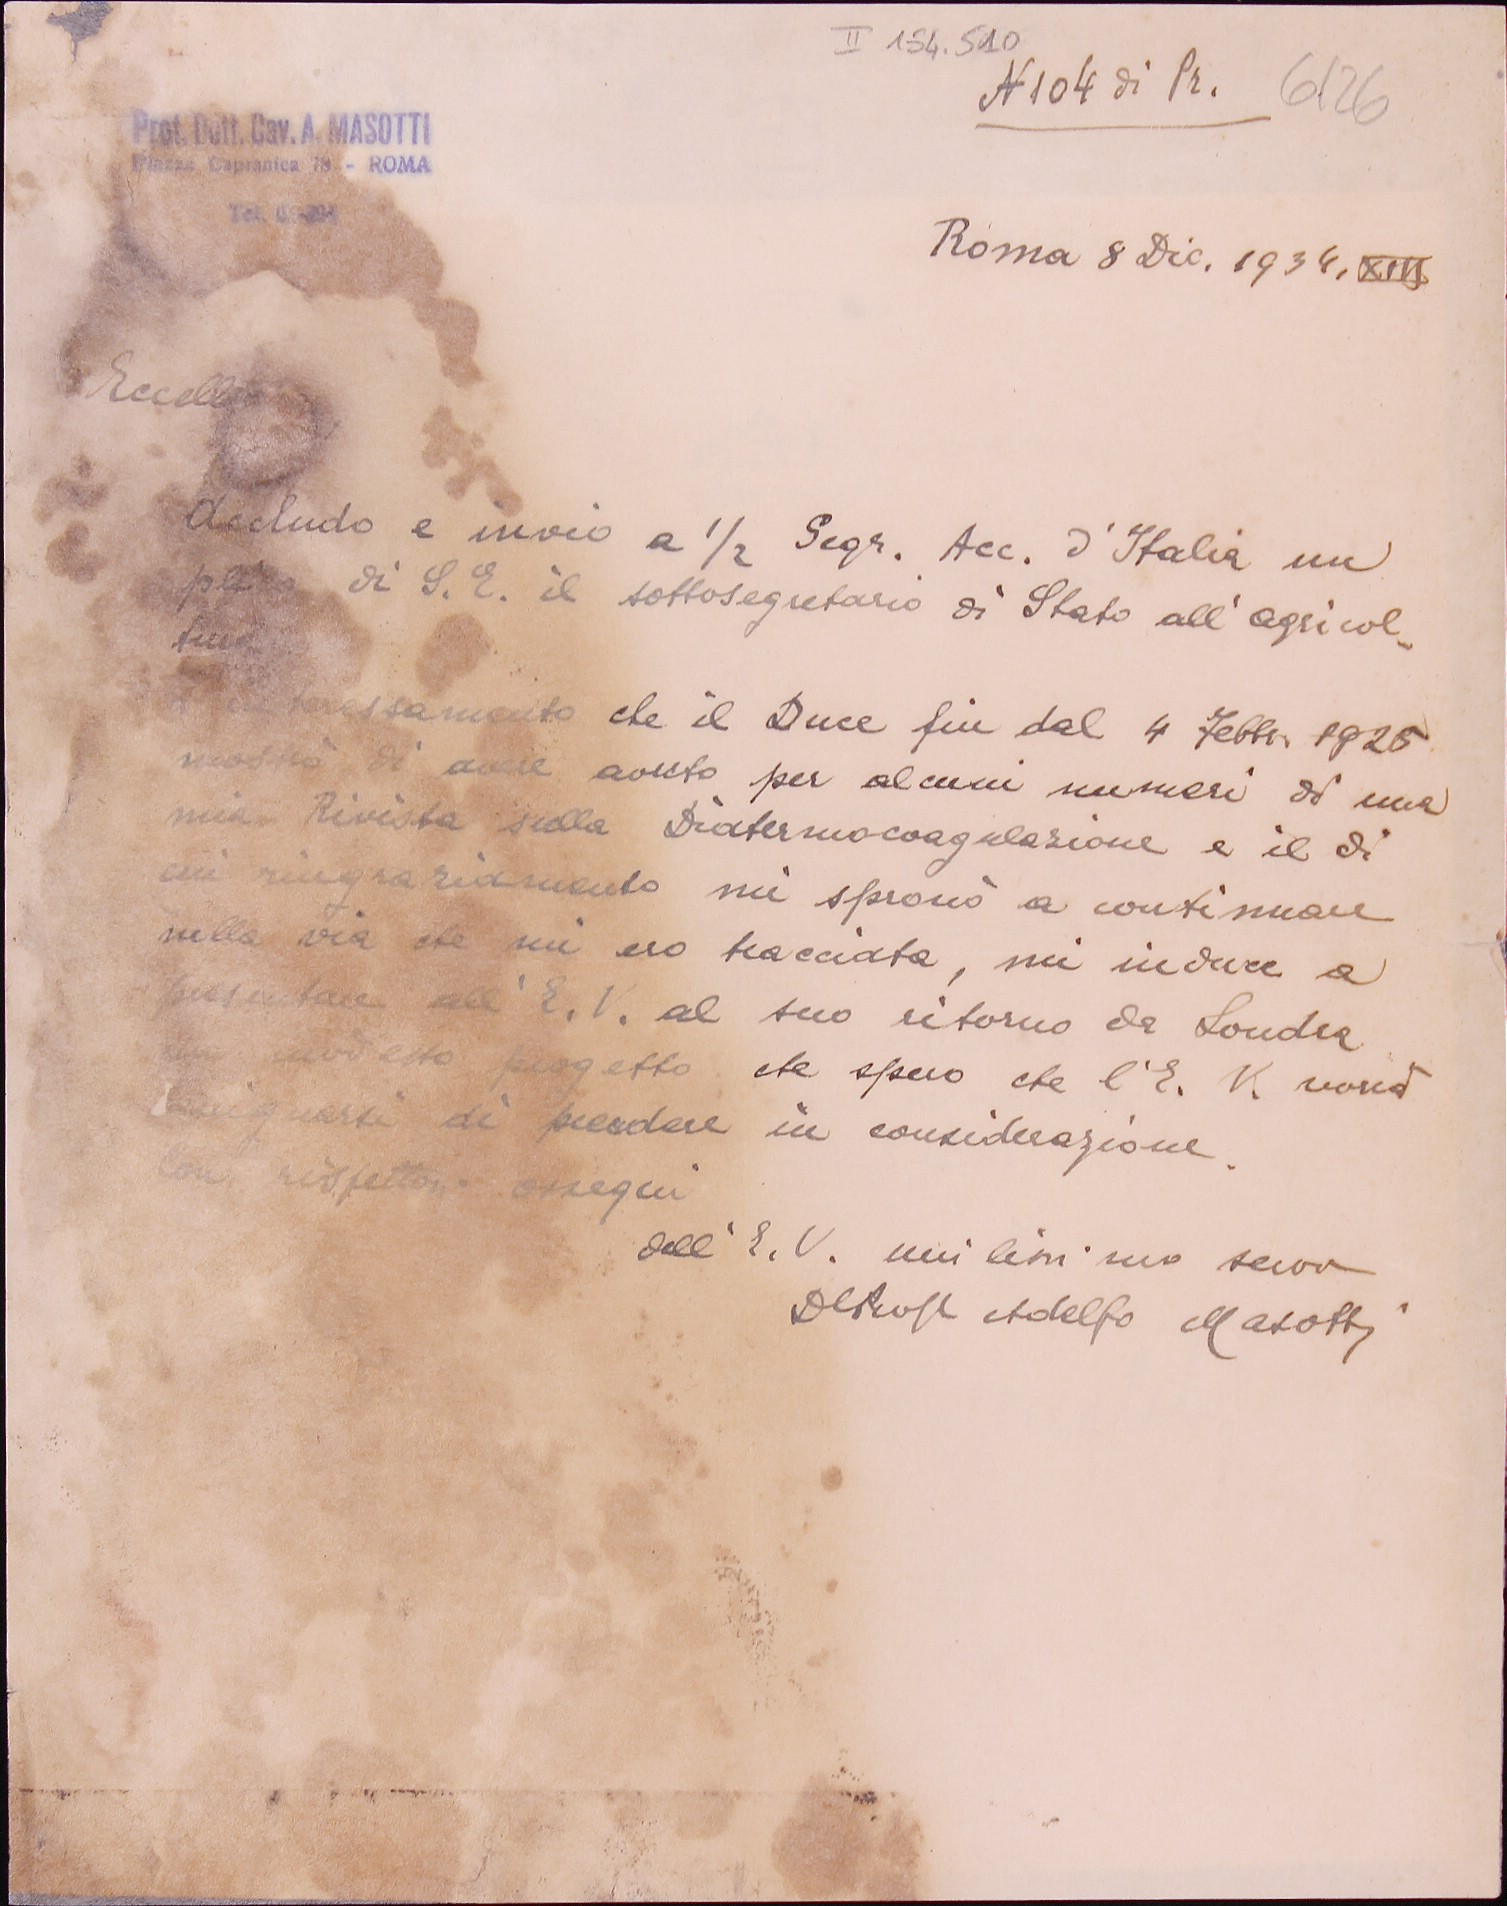 II 154.510
N 104 di Pr. 6126
Prof. Dott. Cav. A. MASOTTI
Piazza Capranica 78 - ROMA
Tel.
Roma 8 Dic. 1934, XIII
Accludo e invio a 1/2 Segr. Acc. d'Italia un
di S. E. il sottosegretario di Stato all'agricol-
tura
interessamento che il Duce fin dal 4 Febbr. 1925
mostrò di avere avuto per alcuni numeri di una
mia Rivista sulla Diatermocoagulazione e il di
cui ringraziamento mi spronò a continuare
nella via che mi ero tracciata, mi induce a
presentare all'E. V. al suo ritorno da Londra
un modesto progetto che spero che l'E. V. vorrà
di prendere in considerazione.
Con rispettosi ossequi
dell'E. V. umilissimo servo
Adelfo Masotti